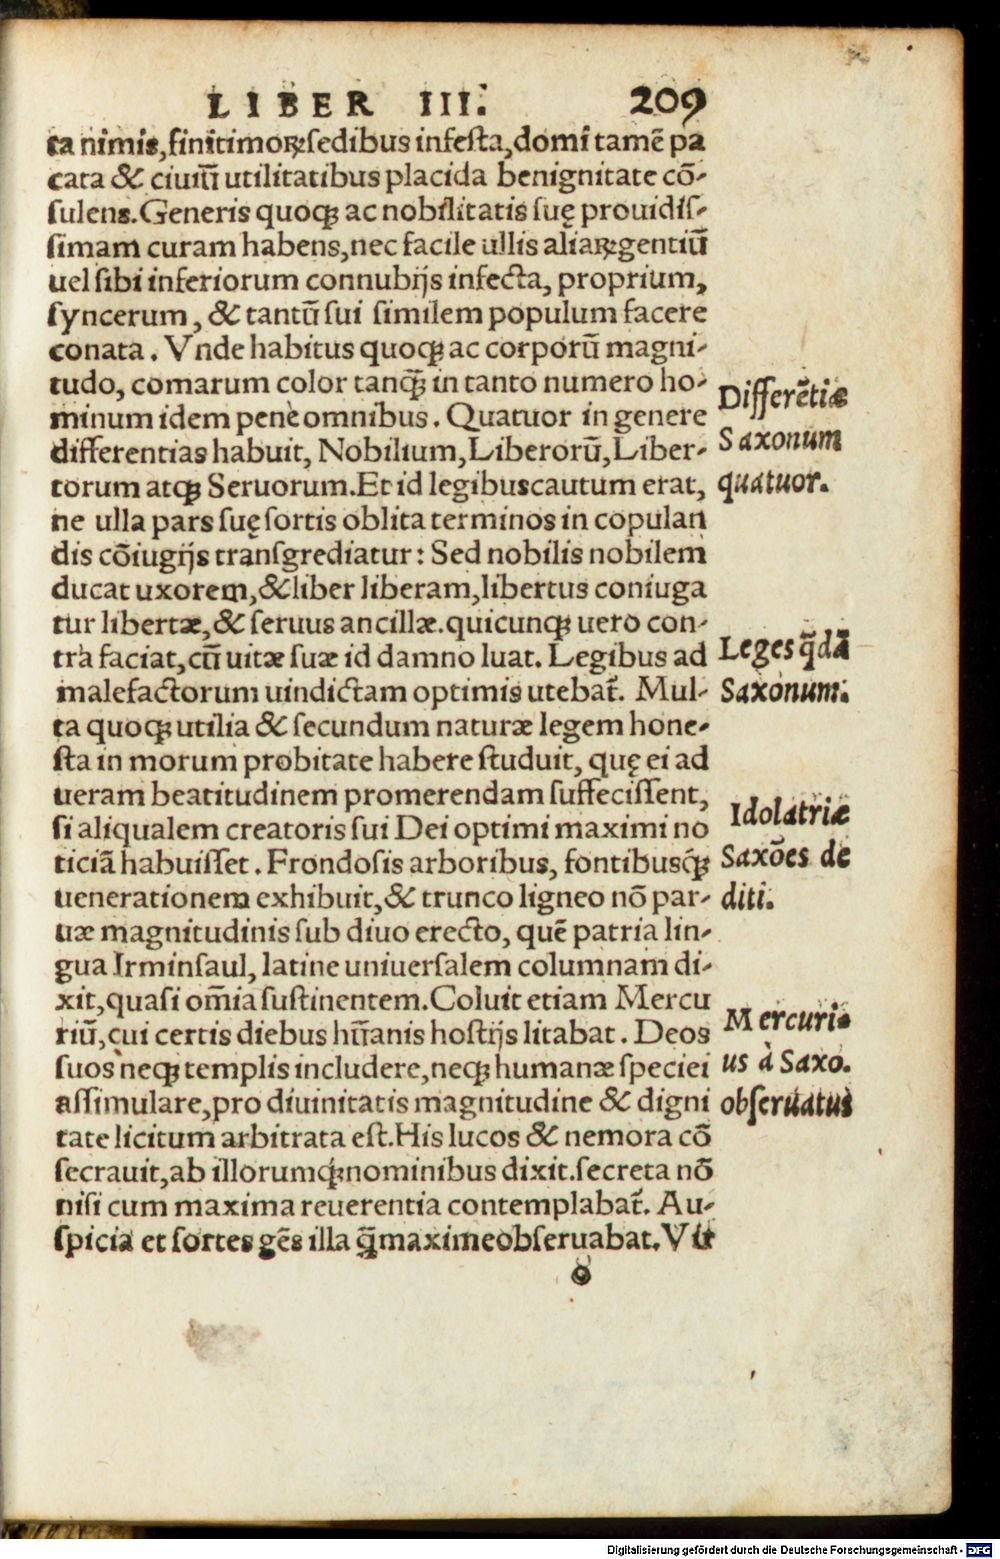 LIBER III. 209
ta nimis, finitimoꝝ sedibus infesta, domi tamē pa
cata & ciuiū utilitatibus placida benignitate cō-
sulens. Generis quoqꝫ ac nobilitatis suę prouidis-
simam curam habens, nec facile ullis aliaꝝ gentiū
uel sibi inferiorum connubijs infecta, proprium,
syncerum, & tantū sui similem populum facere
conata. Vnde habitus quoqꝫ ac corporū magni-
tudo, comarum color tanq̄ꝫ in tanto numero ho-
minum idem penè omnibus. Quatuor in genere
differentias habuit, Nobilium, Liberorū, Liber-
torum atqꝫ Seruorum. Et id legibus cautum erat,
ne ulla pars suę sortis oblita terminos in copulan
dis cōiugijs transgrediatur: Sed nobilis nobilem
ducat uxorem, & liber liberam, libertus coniuga
tur libertæ, & seruus ancillæ. quicunqꝫ uero con-
tra faciat, cū uitæ suæ id damno luat. Legibus ad
malefactorum uindictam optimis utebat̃. Mul-
ta quoqꝫ utilia & secundum naturæ legem hone-
sta in morum probitate habere studuit, quę ei ad
ueram beatitudinem promerendam suffecissent,
si aliqualem creatoris sui Dei optimi maximi no
ticiā habuisset. Frondosis arboribus, fontibusq̄ꝫ
uenerationem exhibuit, & trunco ligneo nō par-
uæ magnitudinis sub diuo erecto, quē patria lin-
gua Irminsaul, latine uniuersalem columnam di-
xit, quasi om̄ia sustinentem. Coluit etiam Mercu
riū, cui certis diebus hūanis hostijs litabat. Deos
suos neqꝫ templis includere, neqꝫ humanæ speciei
assimulare, pro diuinitatis magnitudine & digni
tate licitum arbitrata est. His lucos & nemora cō
secrauit, ab illorumqꝫ nominibus dixit. secreta nō
nisi cum maxima reuerentia contemplabat̃. Au-
spicia et sortes gēs illa q̄ maxime obseruabat. Vir
o
Differētiæ
Saxonum
quatuor.
Leges q̄dā
Saxonum.
Idolatriæ
Saxōes de
diti.
Mercuri-
us à Saxo.
obseruatus
Digitalisierung gefördert durch die Deutsche Forschungsgemeinschaft - DFG